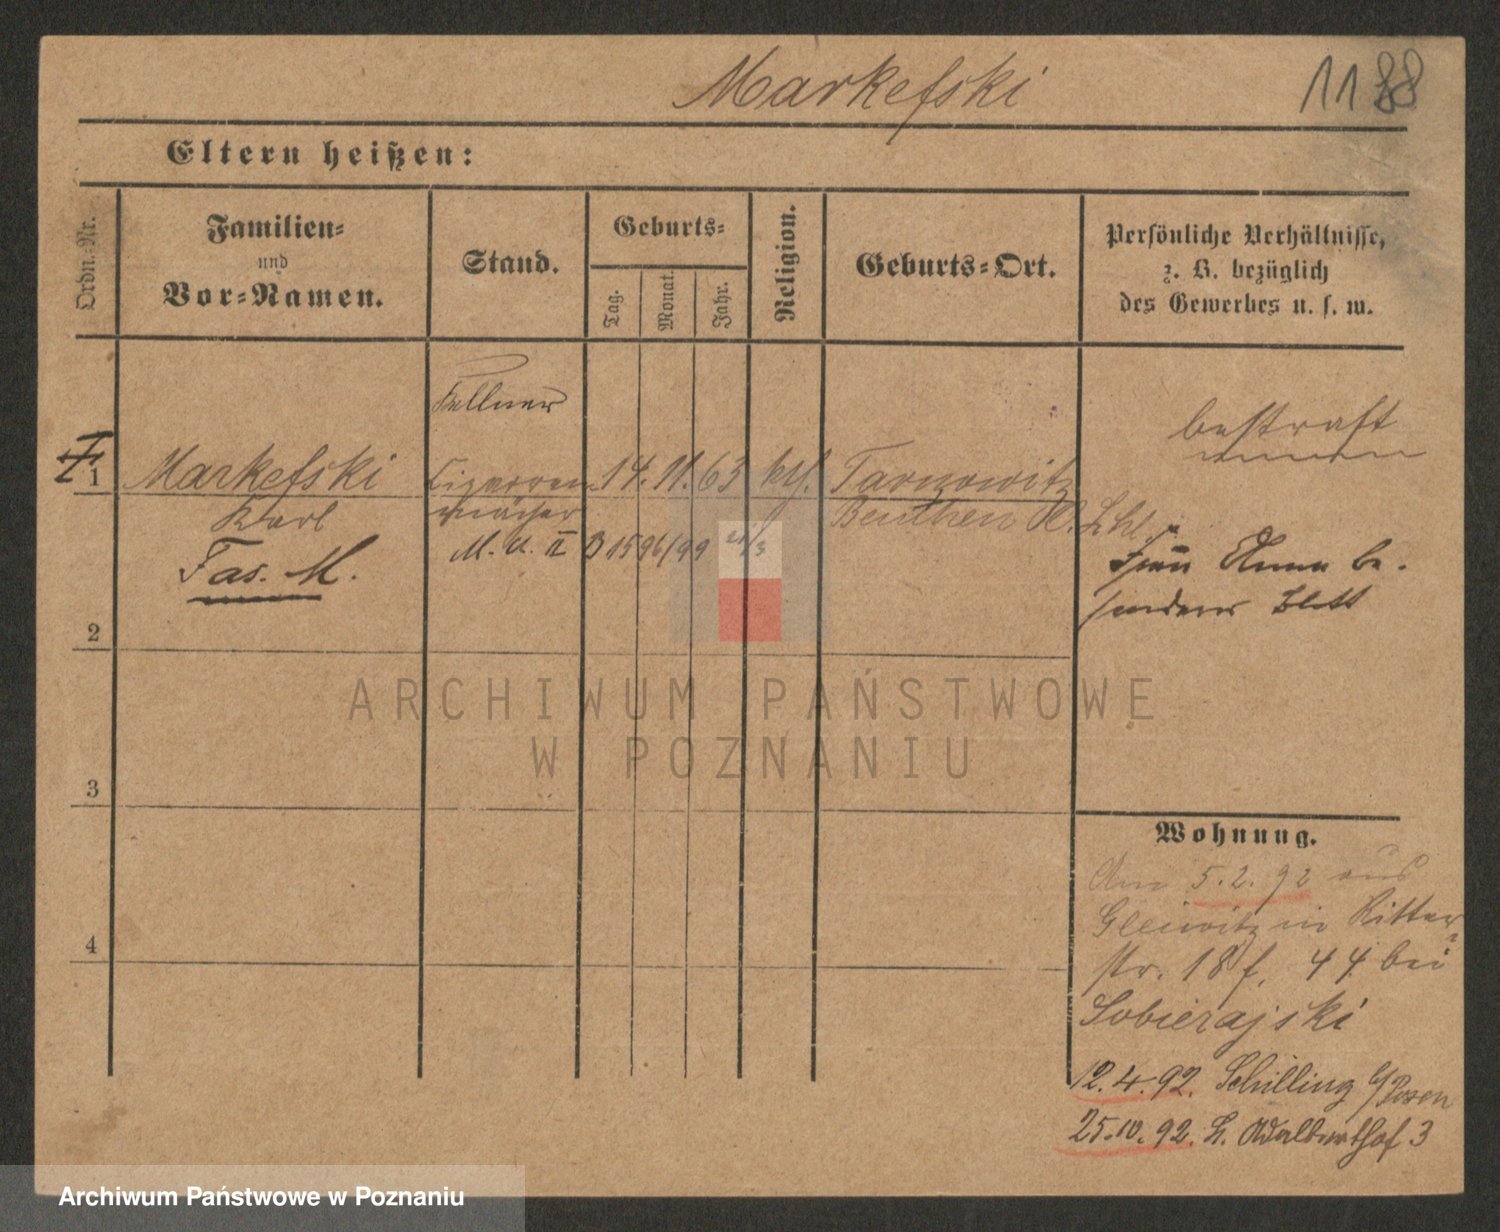 Markefski
1188
Eltern heißen:
Ordn.-Nr.
Familien-
und
Vor-Namen.
Stand.
Geburts-
Tag.
Monat.
Jahr.
Religion.
Geburts-Ort.
Persönliche Verhältnisse,
z. B. bezüglich
des Gewerbes u. s. w.
Kellner
bestraft
1 Markefski Cigarren 14. 11. 63 kth. Tarnowitz
Karl macher Beuthen
Fas. M. M. U. II B 1596/99
Frau Anna be-
sonderes Blatt
2
ARCHIWUM PAŃSTWOWE
W POZNANIU
3
Wohnung.
Am 5.2.92 aus
Gleiwitz in Ritter-
str. 18 f. 44 bei
Sobierajski
12.4.92. Schilling b/Posen
25.10.92. St. Adalberthof 3
4
Archiwum Państwowe w Poznaniu